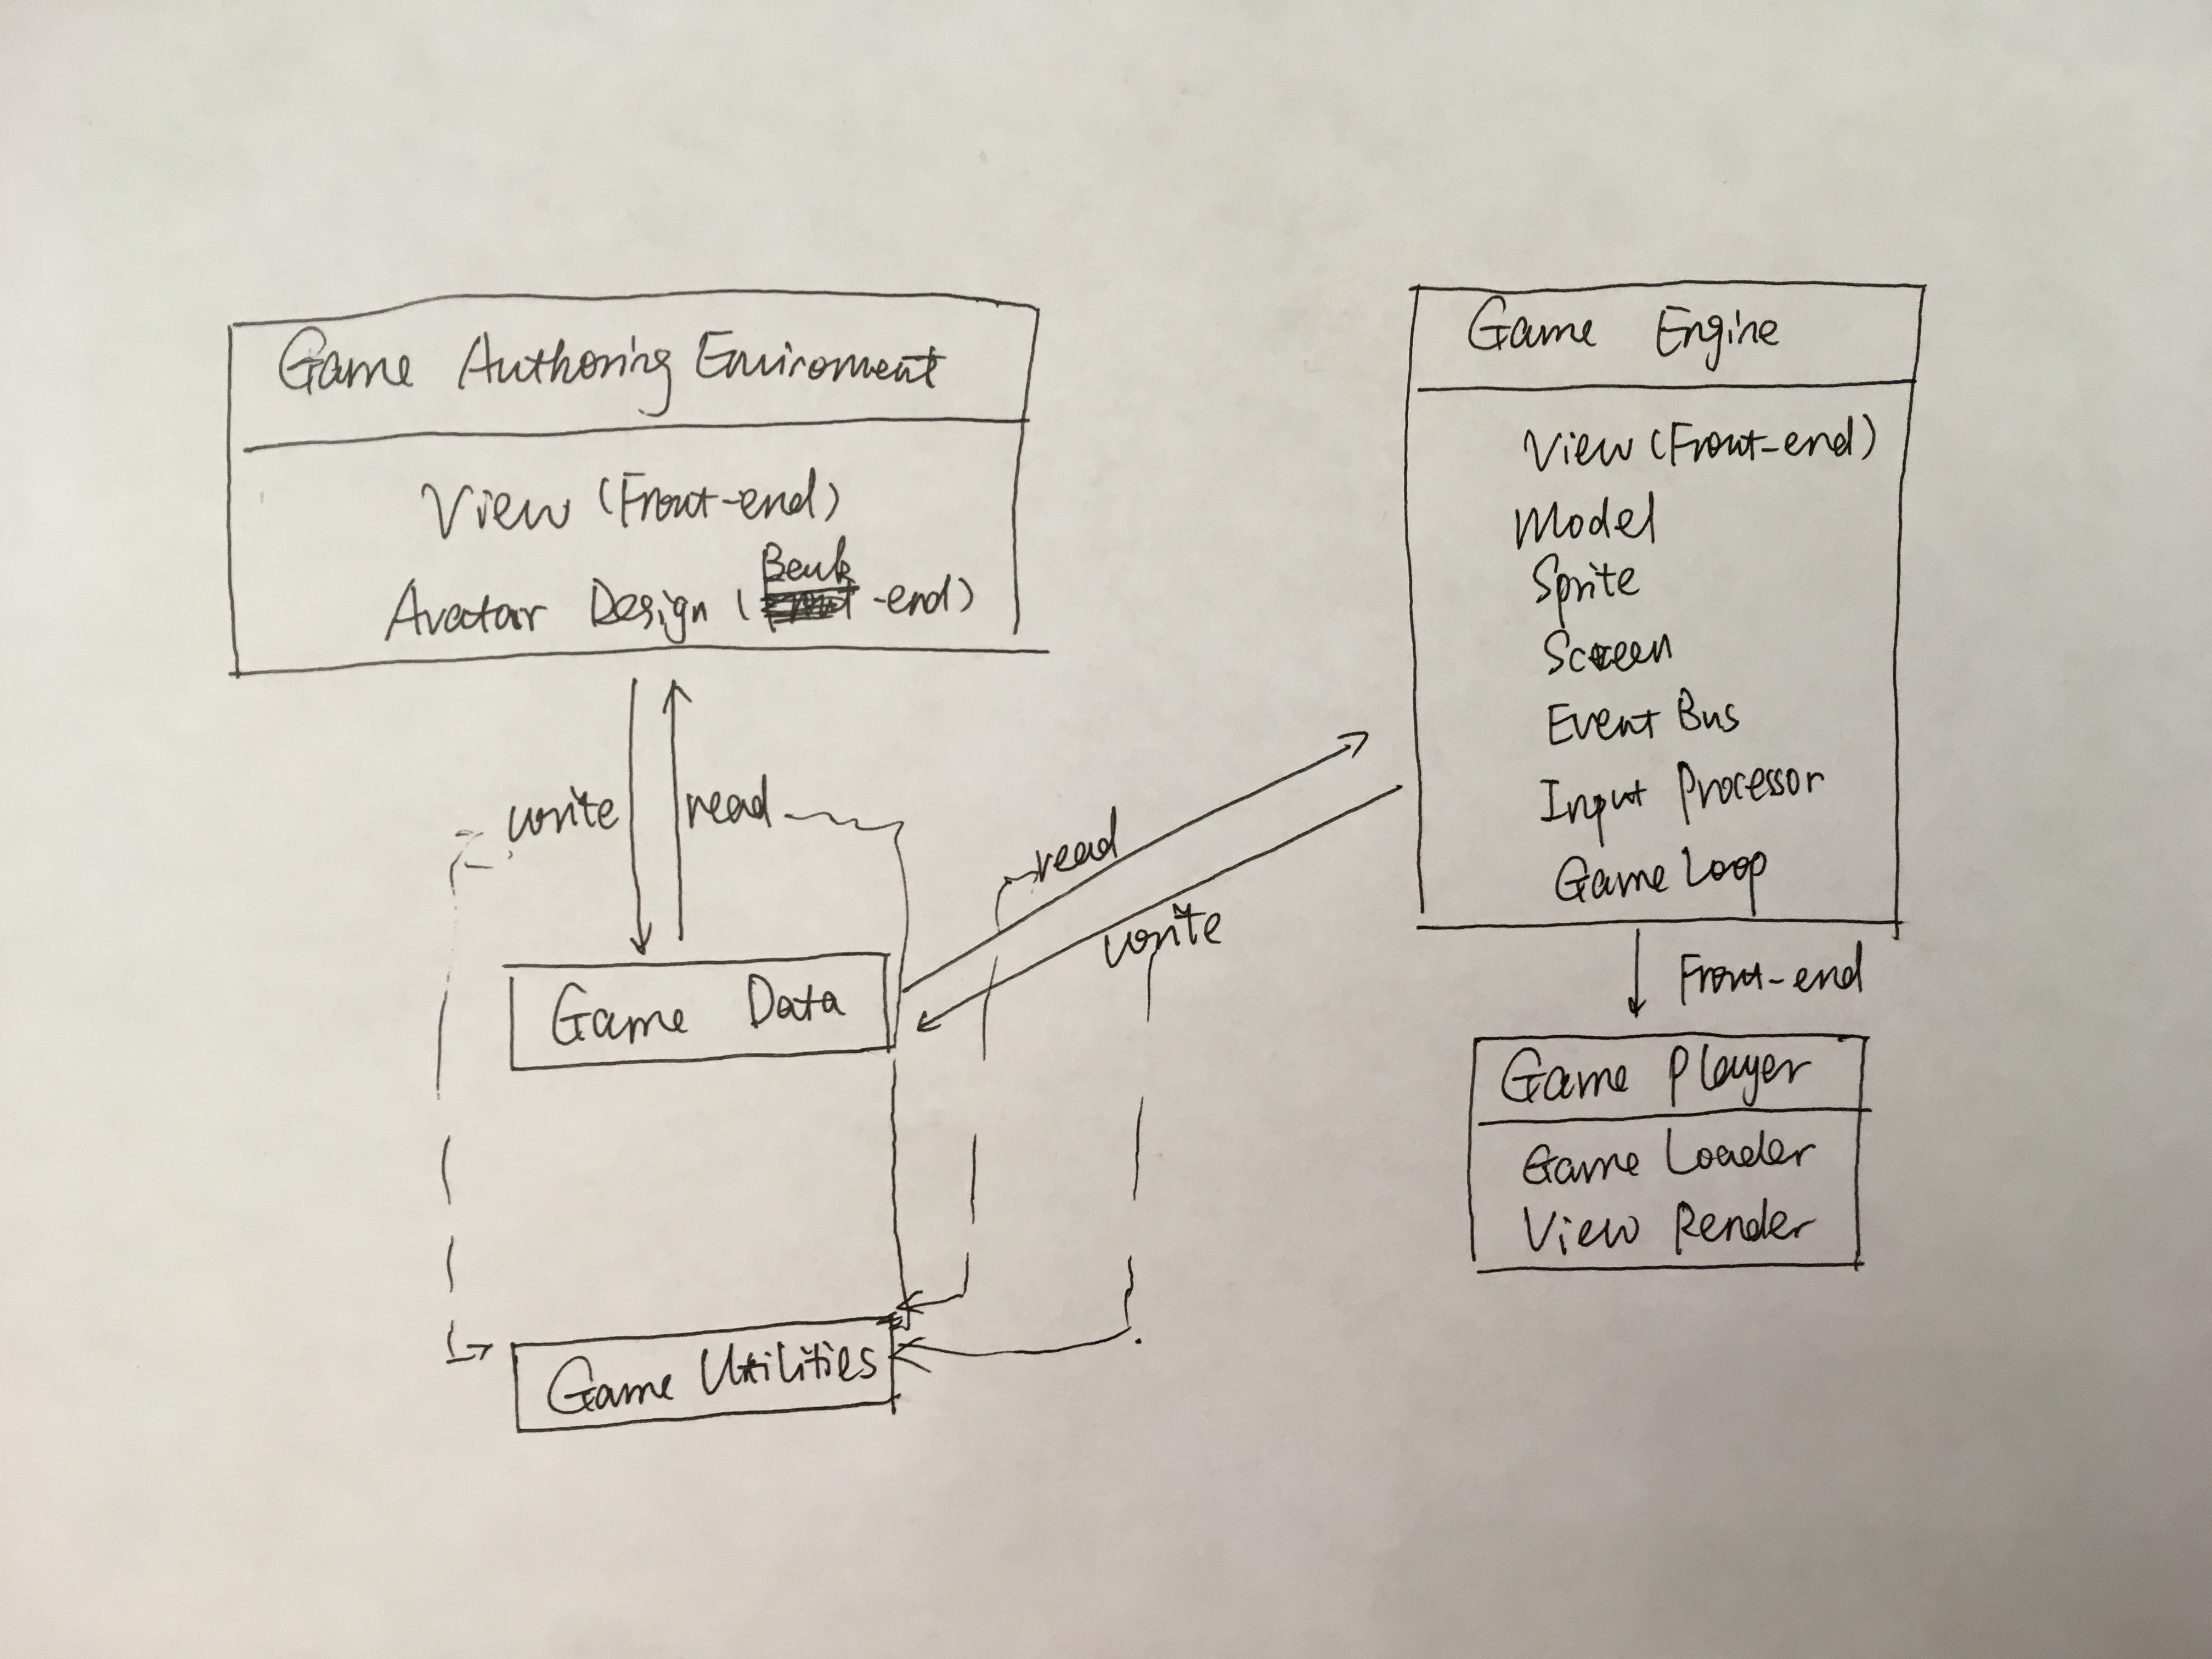 Game Authoring Enviroment
View (Front-end)
Avatar Design (Back-end)
write
read
Game Data
Game Utilities
read
write
Game Engine
View (Front-end)
Model
Sprite
Screen
Event Bus
Input Processor
Game Loop
Front-end
Game Player
Game Loader
View Render